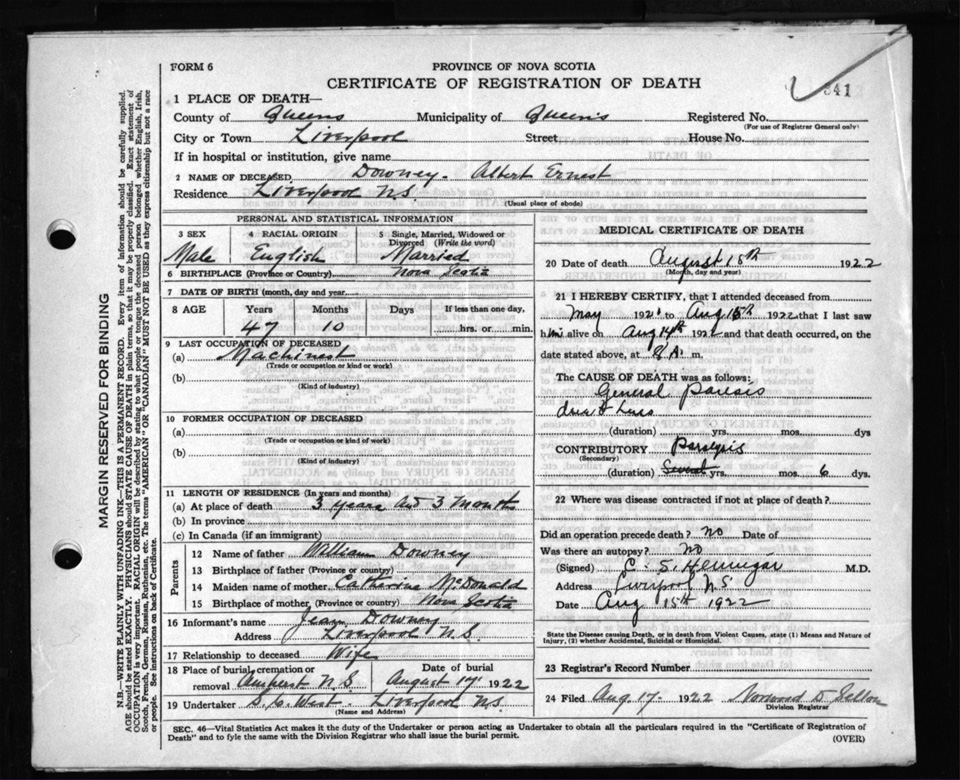 FORM 6
PROVINCE OF NOVA SCOTIA
CERTIFICATE OF REGISTRATION OF DEATH
341
1 PLACE OF DEATH—
County of Queens Municipality of Queen's Registered No.
(For use of Registrar General only)
City or Town Liverpool Street House No.
If in hospital or institution, give name
2 NAME OF DECEASED Downey - Albert Ernest
Residence Liverpool N.S.
(Usual place of abode)
PERSONAL AND STATISTICAL INFORMATION
3 SEX
Male
4 RACIAL ORIGIN
English
5 Single, Married, Widowed or Divorced (Write the word)
Married
6 BIRTHPLACE (Province or Country) Nova Scotia
7 DATE OF BIRTH (month, day and year)
8 AGE Years Months Days If less than one day,
47 10 hrs. or min.
9 LAST OCCUPATION OF DECEASED
(a) Machinest
(Trade or occupation or kind or work)
(b)
(Kind of industry)
10 FORMER OCCUPATION OF DECEASED
(a)
(Trade or occupation or kind of work)
(b)
(Kind of industry)
11 LENGTH OF RESIDENCE (In years and months)
(a) At place of death 3 years and 3 months
(b) In province
(c) In Canada (if an immigrant)
Parents
12 Name of father William Downey
13 Birthplace of father (Province or country)
14 Maiden name of mother Catharine McDonald
15 Birthplace of mother (Province or country) Nova Scotia
16 Informant's name Jean Downey
Address Liverpool N.S.
17 Relationship to deceased Wife
18 Place of burial, cremation or removal Amherst N.S
Date of burial
August 17, 1922
19 Undertaker S. C. West - Liverpool N.S.
(Name and Address)
MEDICAL CERTIFICATE OF DEATH
20 Date of death August 15th 1922
(Month, day and year)
21 I HEREBY CERTIFY, that I attended deceased from
May 1921 to Aug 15th 1922 that I last saw
him alive on Aug 14th 1922 and that death occurred, on the
date stated above, at 8 A. m.
The CAUSE OF DEATH was as follows:
General Paresis
(duration) yrs. mos. dys
CONTRIBUTORY Paralysis
(Secondary)
(duration) yrs. mos. 6 dys.
22 Where was disease contracted if not at place of death?
Did an operation precede death? No Date of
Was there an autopsy? No
(Signed) C. S. Hennigar M.D.
Address Liverpool N.S
Date Aug 15th 1922
State the Disease causing Death, or in death from Violent Causes, state (1) Means and Nature of Injury, (2) whether Accidental, Suicidal or Homicidal.
23 Registrar's Record Number
24 Filed Aug 17- 1922 Norwood D
Division Registrar
SEC. 46—Vital Statistics Act makes it the duty of the Undertaker or person acting as Undertaker to obtain all the particulars required in the "Certificate of Registration of
Death" and to fyle the same with the Division Registrar who shall issue the burial permit.
(OVER)
MARGIN RESERVED FOR BINDING
N.B.—WRITE PLAINLY WITH UNFADING INK—THIS IS A PERMANENT RECORD. Every item of information should be carefully supplied.
AGE should be stated EXACTLY. PHYSICIANS should STATE CAUSE OF DEATH in plain terms, so that it may be properly classified. Exact statement of
OCCUPATION is very important. RACIAL ORIGIN will be described by stating to what people or tongue the deceased person belonged whether English, Irish,
Scotch, French, German, Russian, Ruthenian, etc. The terms "AMERICAN" OR "CANADIAN" MUST NOT BE USED as they express citizenship but not a race
or people. See instructions on back of Certificate.